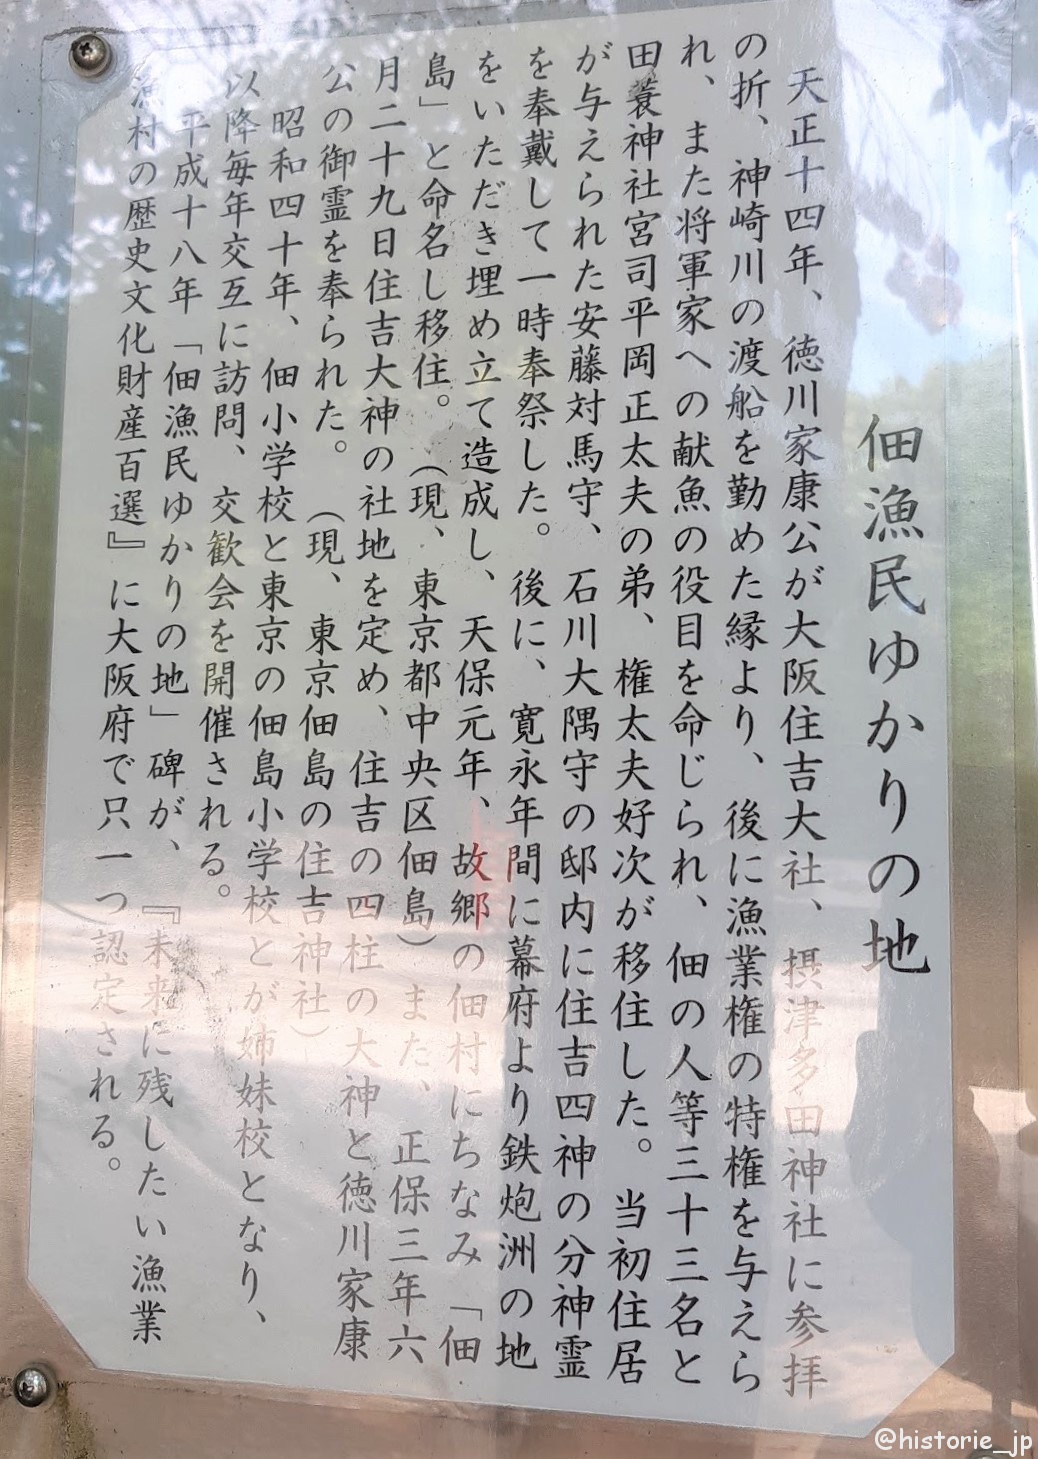 佃漁民ゆかりの地
天正十四年、徳川家康公が大阪住吉大社、摂津多田神社に参拝
の折、神崎川の渡船を勤めた縁より、後に漁業権の特権を与えら
れ、また将軍家への献魚の役目を命じられ、佃の人等三十三名と
田蓑神社宮司平岡正太夫の弟、権太夫好次が移住した。当初住居
が与えられた安藤対馬守、石川大隅守の邸内に住吉四神の分神霊
を奉戴して一時奉祭した。後に、寛永年間に幕府より鉄炮洲の地
をいただき埋め立て造成し、天保元年、故郷の佃村にちなみ「佃
島」と命名し移住。（現、東京都中央区佃島）また、正保三年六
月二十九日住吉大神の社地を定め、住吉の四柱の大神と徳川家康
公の御霊を奉られた。（現、東京佃島の住吉神社）
昭和四十年、佃小学校と東京の佃島小学校とが姉妹校となり、
以降毎年交互に訪問、交歓会を開催される。
平成十八年「佃漁民ゆかりの地」碑が、『未来に残したい漁業
漁村の歴史文化財産百選』に大阪府で只一つ認定される。
@historie_jp